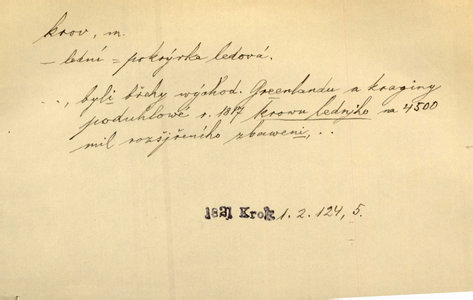 krov, m.
– lední = pokrývka ledová.
.., byli břehy východ. Greenlandu a kraginy
poduhlowé r. 1817 krowu ledního na 4500
mil rozšjřeného zbaweni, ..
1821 Krok 1. 2. 124, 5.